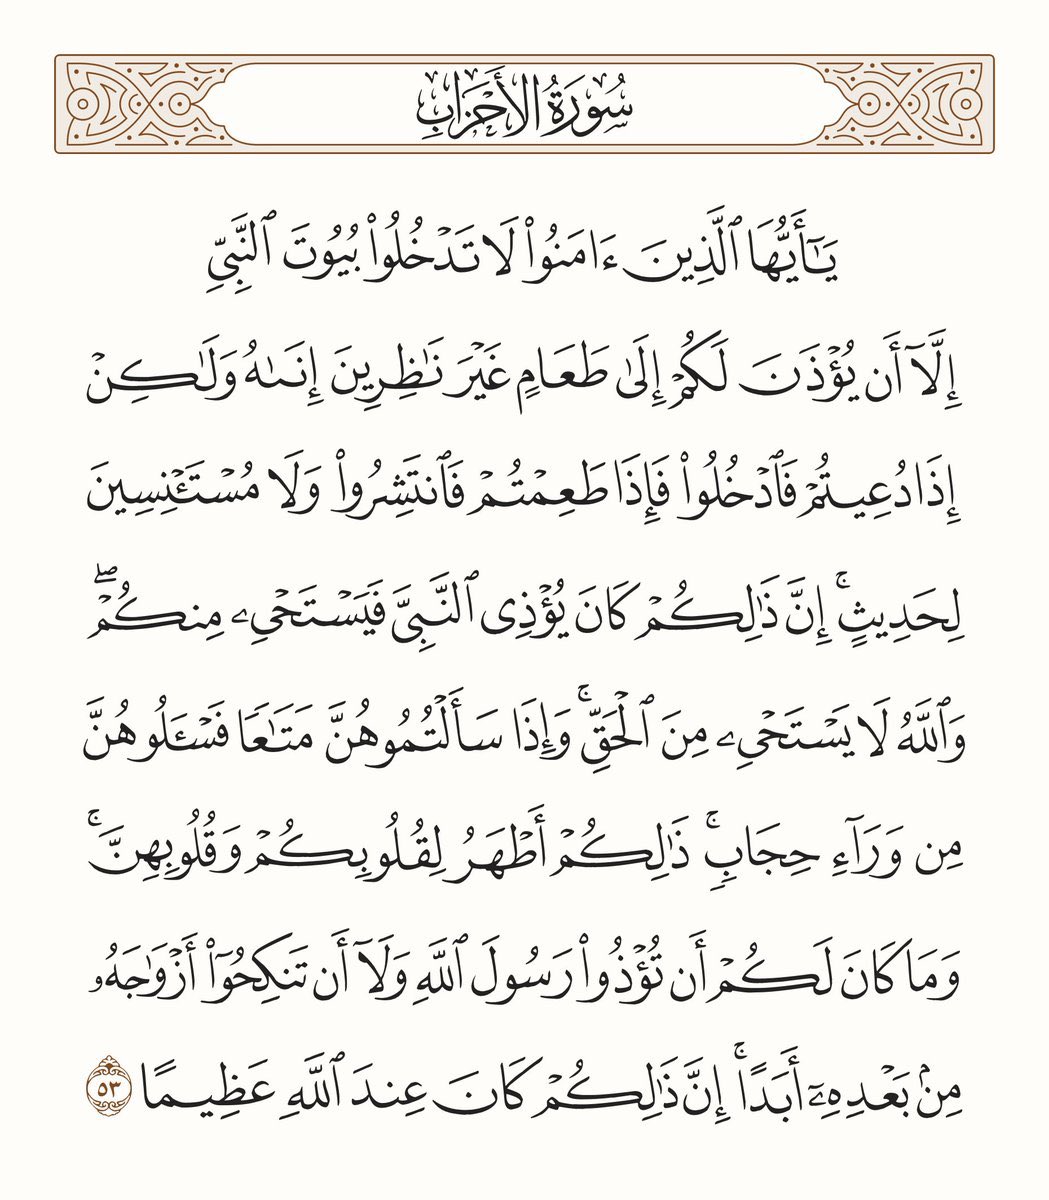 سُورَةُ الأَحْزَابِ
يَـٰٓأَيُّهَا ٱلَّذِينَ ءَامَنُوا۟ لَا تَدْخُلُوا۟ بُيُوتَ ٱلنَّبِىِّ
إِلَّآ أَن يُؤْذَنَ لَكُمْ إِلَىٰ طَعَامٍ غَيْرَ نَـٰظِرِينَ إِنَىٰهُ وَلَـٰكِنْ
إِذَا دُعِيتُمْ فَٱدْخُلُوا۟ فَإِذَا طَعِمْتُمْ فَٱنتَشِرُوا۟ وَلَا مُسْتَـْٔنِسِينَ
لِحَدِيثٍ ۚ إِنَّ ذَٰلِكُمْ كَانَ يُؤْذِى ٱلنَّبِىَّ فَيَسْتَحْىِۦ مِنكُمْ ۖ
وَٱللَّهُ لَا يَسْتَحْىِۦ مِنَ ٱلْحَقِّ ۚ وَإِذَا سَأَلْتُمُوهُنَّ مَتَـٰعًا فَسْـَٔلُوهُنَّ
مِن وَرَآءِ حِجَابٍ ۚ ذَٰلِكُمْ أَطْهَرُ لِقُلُوبِكُمْ وَقُلُوبِهِنَّ ۚ
وَمَا كَانَ لَكُمْ أَن تُؤْذُوا۟ رَسُولَ ٱللَّهِ وَلَآ أَن تَنكِحُوٓا۟ أَزْوَٰجَهُۥ
مِنۢ بَعْدِهِۦٓ أَبَدًا ۚ إِنَّ ذَٰلِكُمْ كَانَ عِندَ ٱللَّهِ عَظِيمًا ٥٣